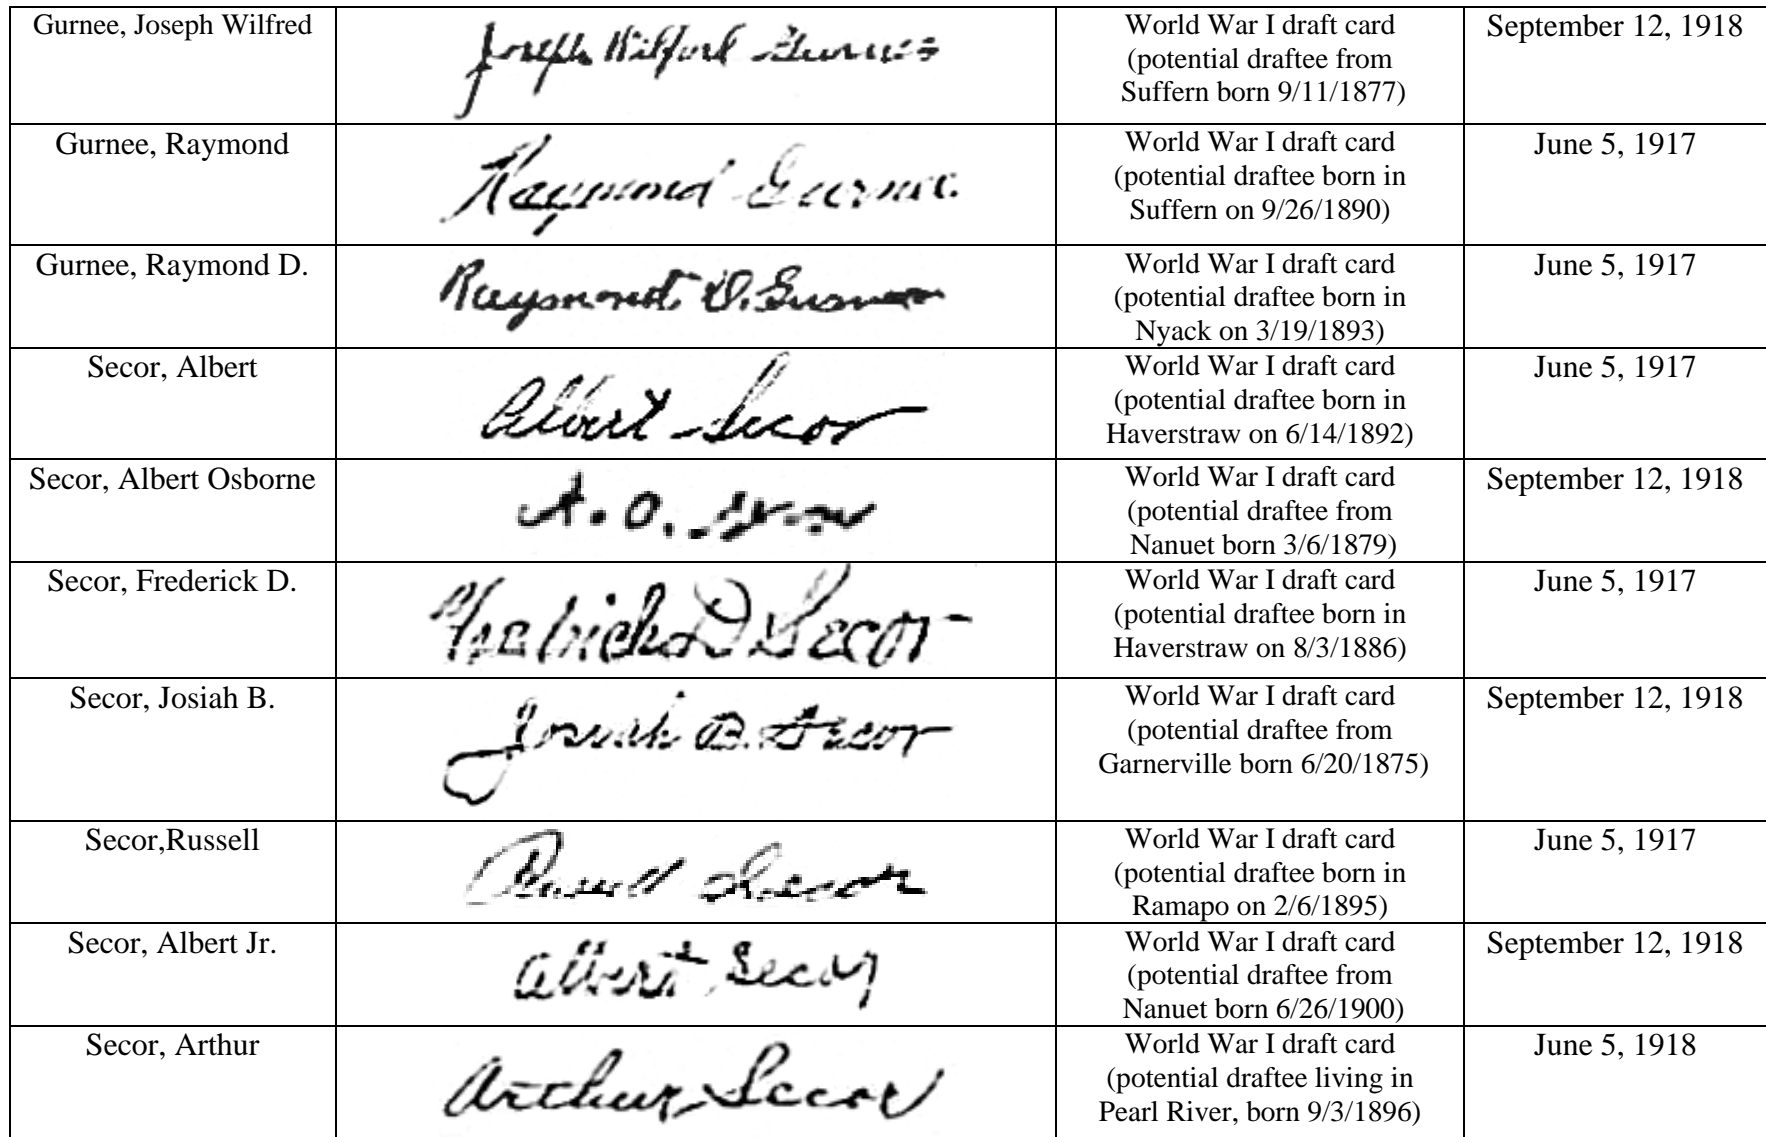 Gurnee, Joseph Wilfred
Joseph Wilford Gurnee
World War I draft card
(potential draftee from
Suffern born 9/11/1877)
September 12, 1918
Gurnee, Raymond
Raymond Gurnee
World War I draft card
(potential draftee born in
Suffern on 9/26/1890)
June 5, 1917
Gurnee, Raymond D.
Raymond D. Gurnee
World War I draft card
(potential draftee born in
Nyack on 3/19/1893)
June 5, 1917
Secor, Albert
Albert Secor
World War I draft card
(potential draftee born in
Haverstraw on 6/14/1892)
June 5, 1917
Secor, Albert Osborne
A. O. Secor
World War I draft card
(potential draftee from
Nanuet born 3/6/1879)
September 12, 1918
Secor, Frederick D.
Fredrick D Secor
World War I draft card
(potential draftee born in
Haverstraw on 8/3/1886)
June 5, 1917
Secor, Josiah B.
Josiah B. Secor
World War I draft card
(potential draftee from
Garnerville born 6/20/1875)
September 12, 1918
Secor,Russell
Russell Secor
World War I draft card
(potential draftee born in
Ramapo on 2/6/1895)
June 5, 1917
Secor, Albert Jr.
Albert Secor
World War I draft card
(potential draftee from
Nanuet born 6/26/1900)
September 12, 1918
Secor, Arthur
Arthur Secor
World War I draft card
(potential draftee living in
Pearl River, born 9/3/1896)
June 5, 1918